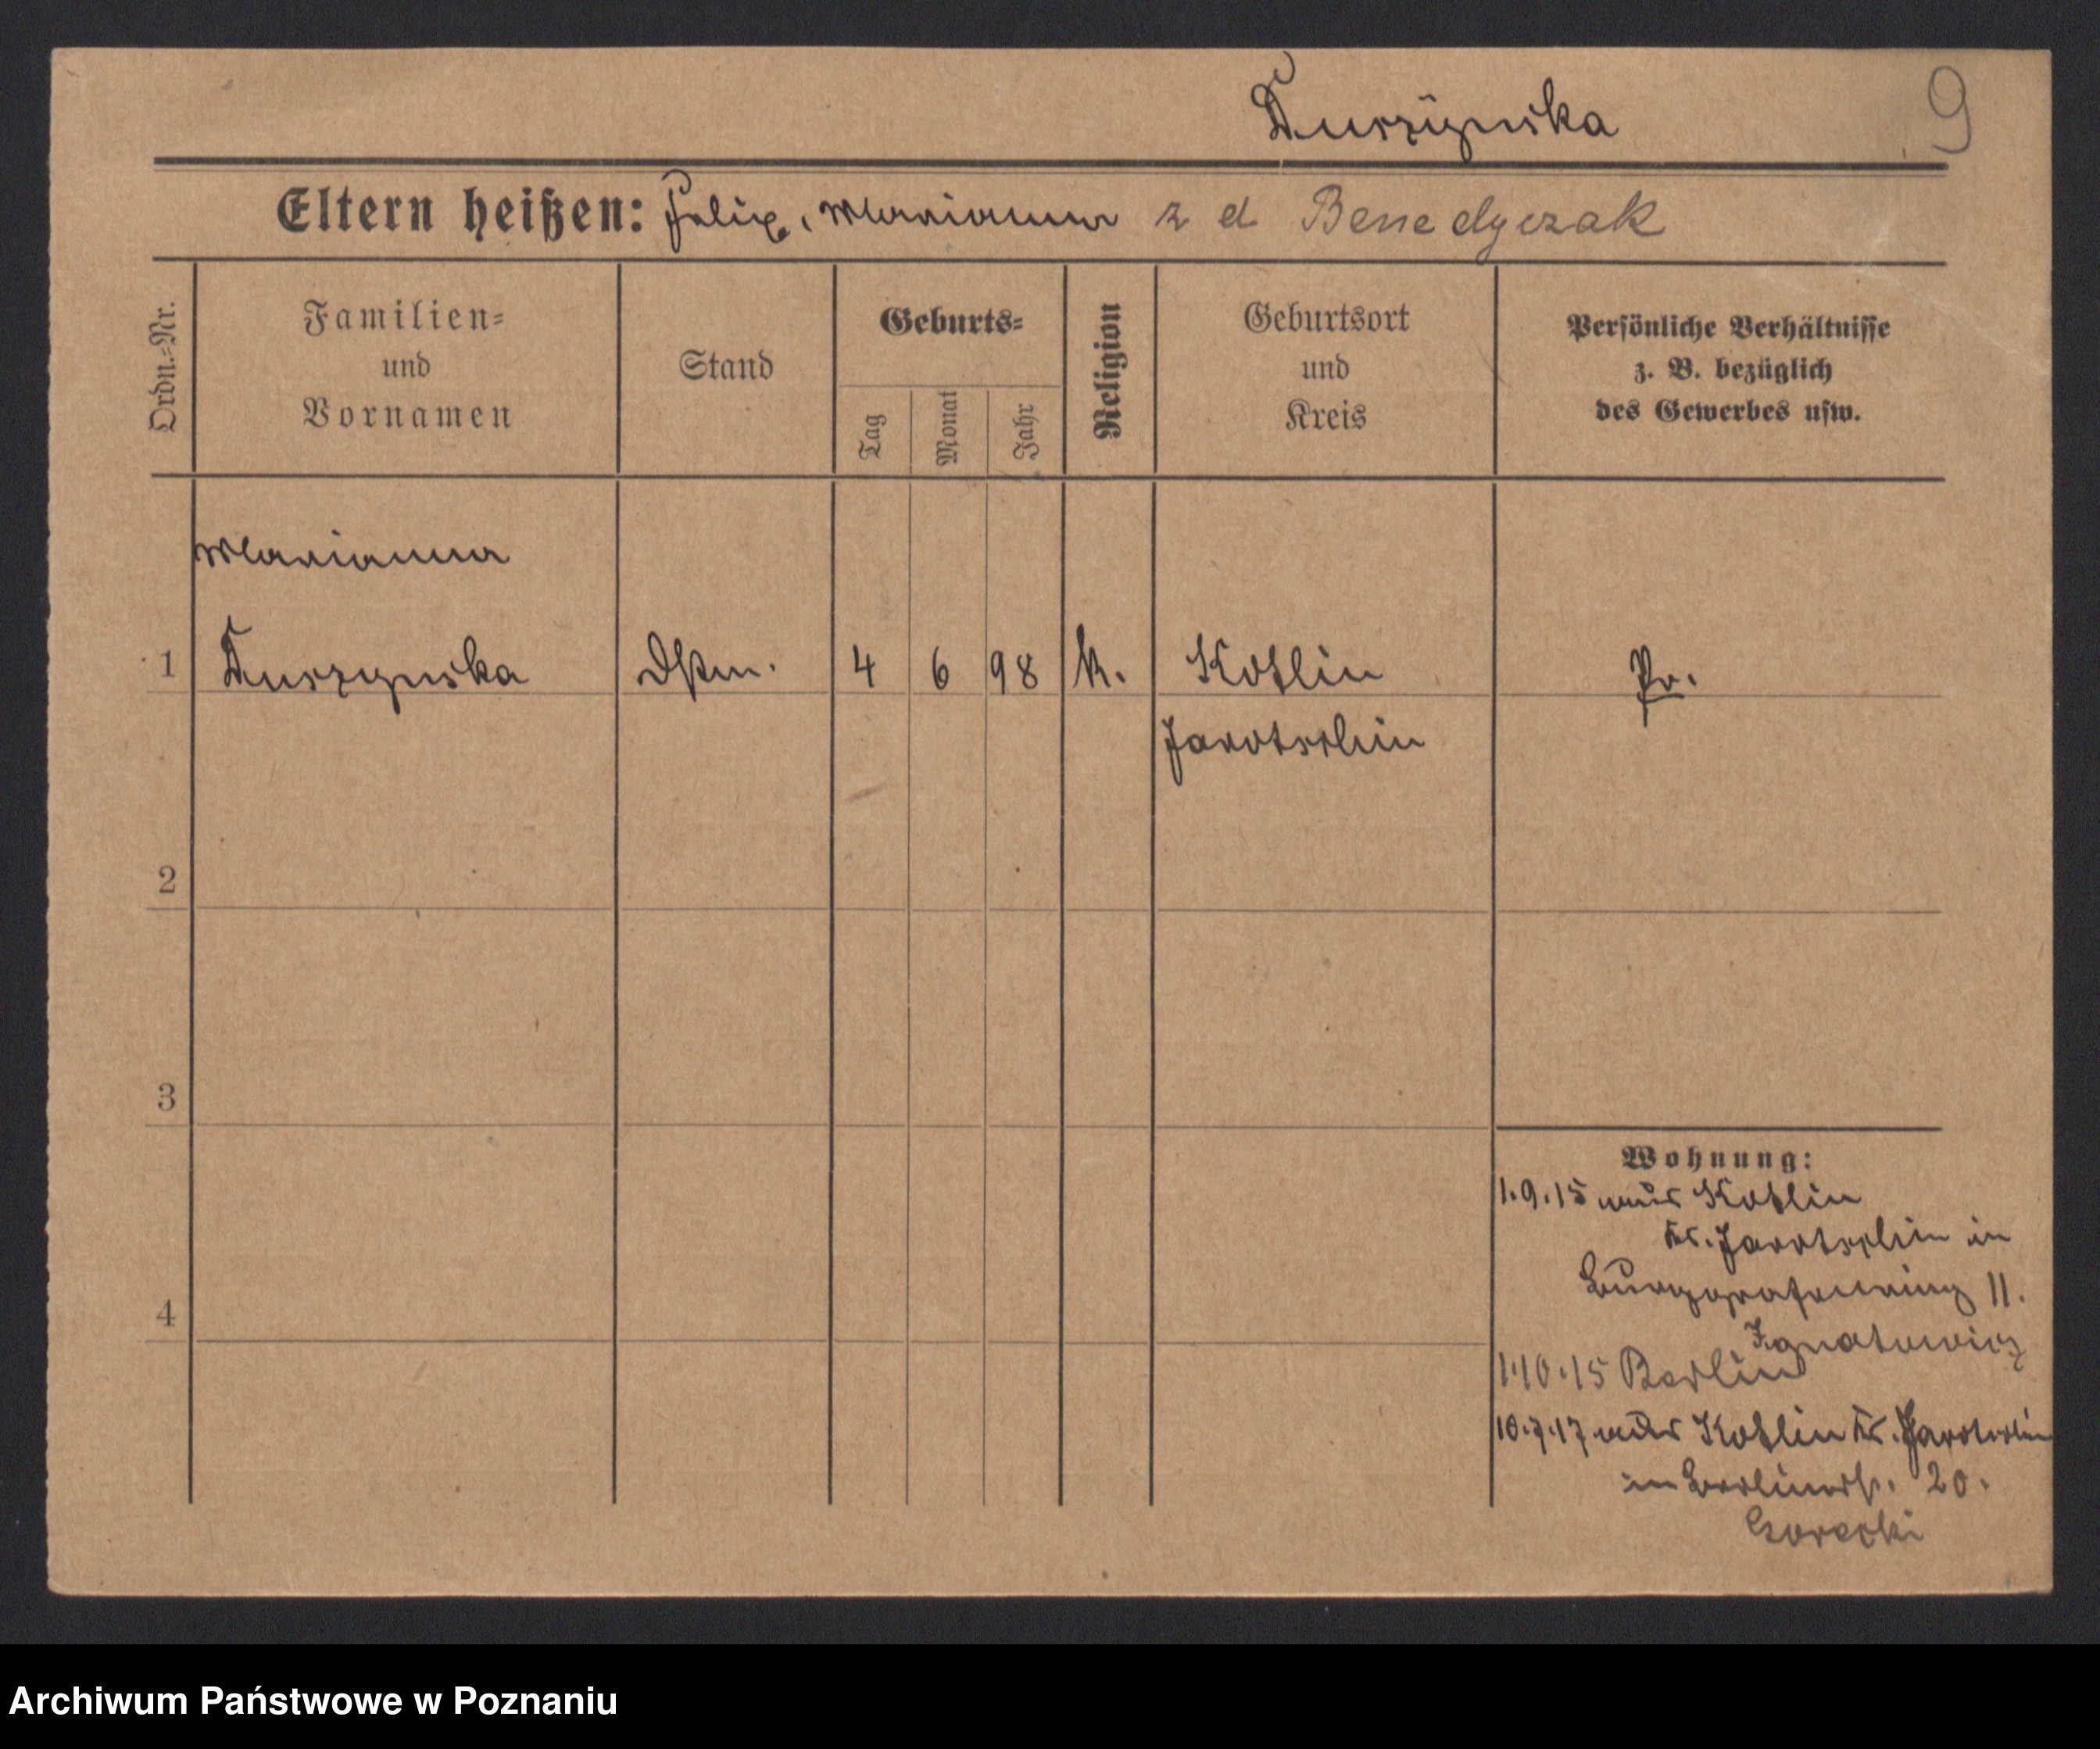 Tuszÿnska
9
Eltern heißen: Felix, Marianna z d Benedyczak
Ordn.=Nr.
Familien=
und
Vornamen
Stand
Geburts=
Tag
Monat
Jahr
Religion
Geburtsort
und
Kreis
Persönliche Verhältnisse
z. B. bezüglich
des Gewerbes usw.
Marianna
1 Tuszynska Dstm. 4 6 98 k. Kotlin Pr.
Jarotschin
2
3
4
Wohnung:
1.9.15 aus Kotlin
Kr. Jarotschin in
Burggrafenring 11.
Ignatowicz
1.10.15 Berlin
10.7.17 aus Kotlin Kr. Jarotschin
in Berlinerstr. 20.
Gorecki
Archiwum Państwowe w Poznaniu